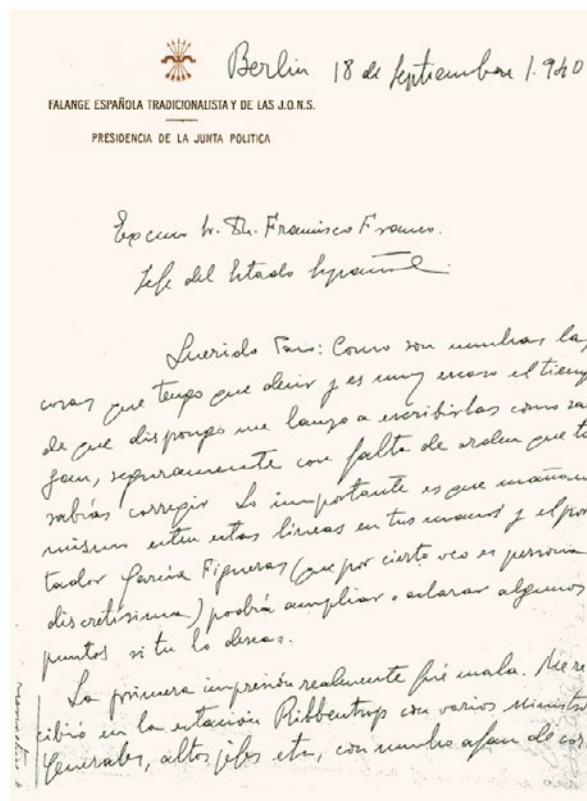 Berlin 18 de Septiembre 1.940
FALANGE ESPAÑOLA TRADICIONALISTA Y DE LAS J.O.N.S.
PRESIDENCIA DE LA JUNTA POLITICA
Excmo Sr. Dn. Francisco Franco.
Jefe del Estado Español
Querido Paco: Como son muchas las
cosas que tengo que decir y es muy escaso el tiemp
de que dispongo me lanzo a escribirlas como sal
gan, seguramente con falta de orden que tu
sabrás corregir. Lo importante es que mañana
mismo esten estas lineas en tus manos y el por
tador García Figueras (que por cierto veo es persona
discretísima) podrá ampliar o aclarar algunos
puntos si tu lo deseas.
La primera impresión realmente fué mala. Me re
cibió en la estación Ribbentrop con varios Ministro
Generales, altos jefes etc, con mucho afan de cor